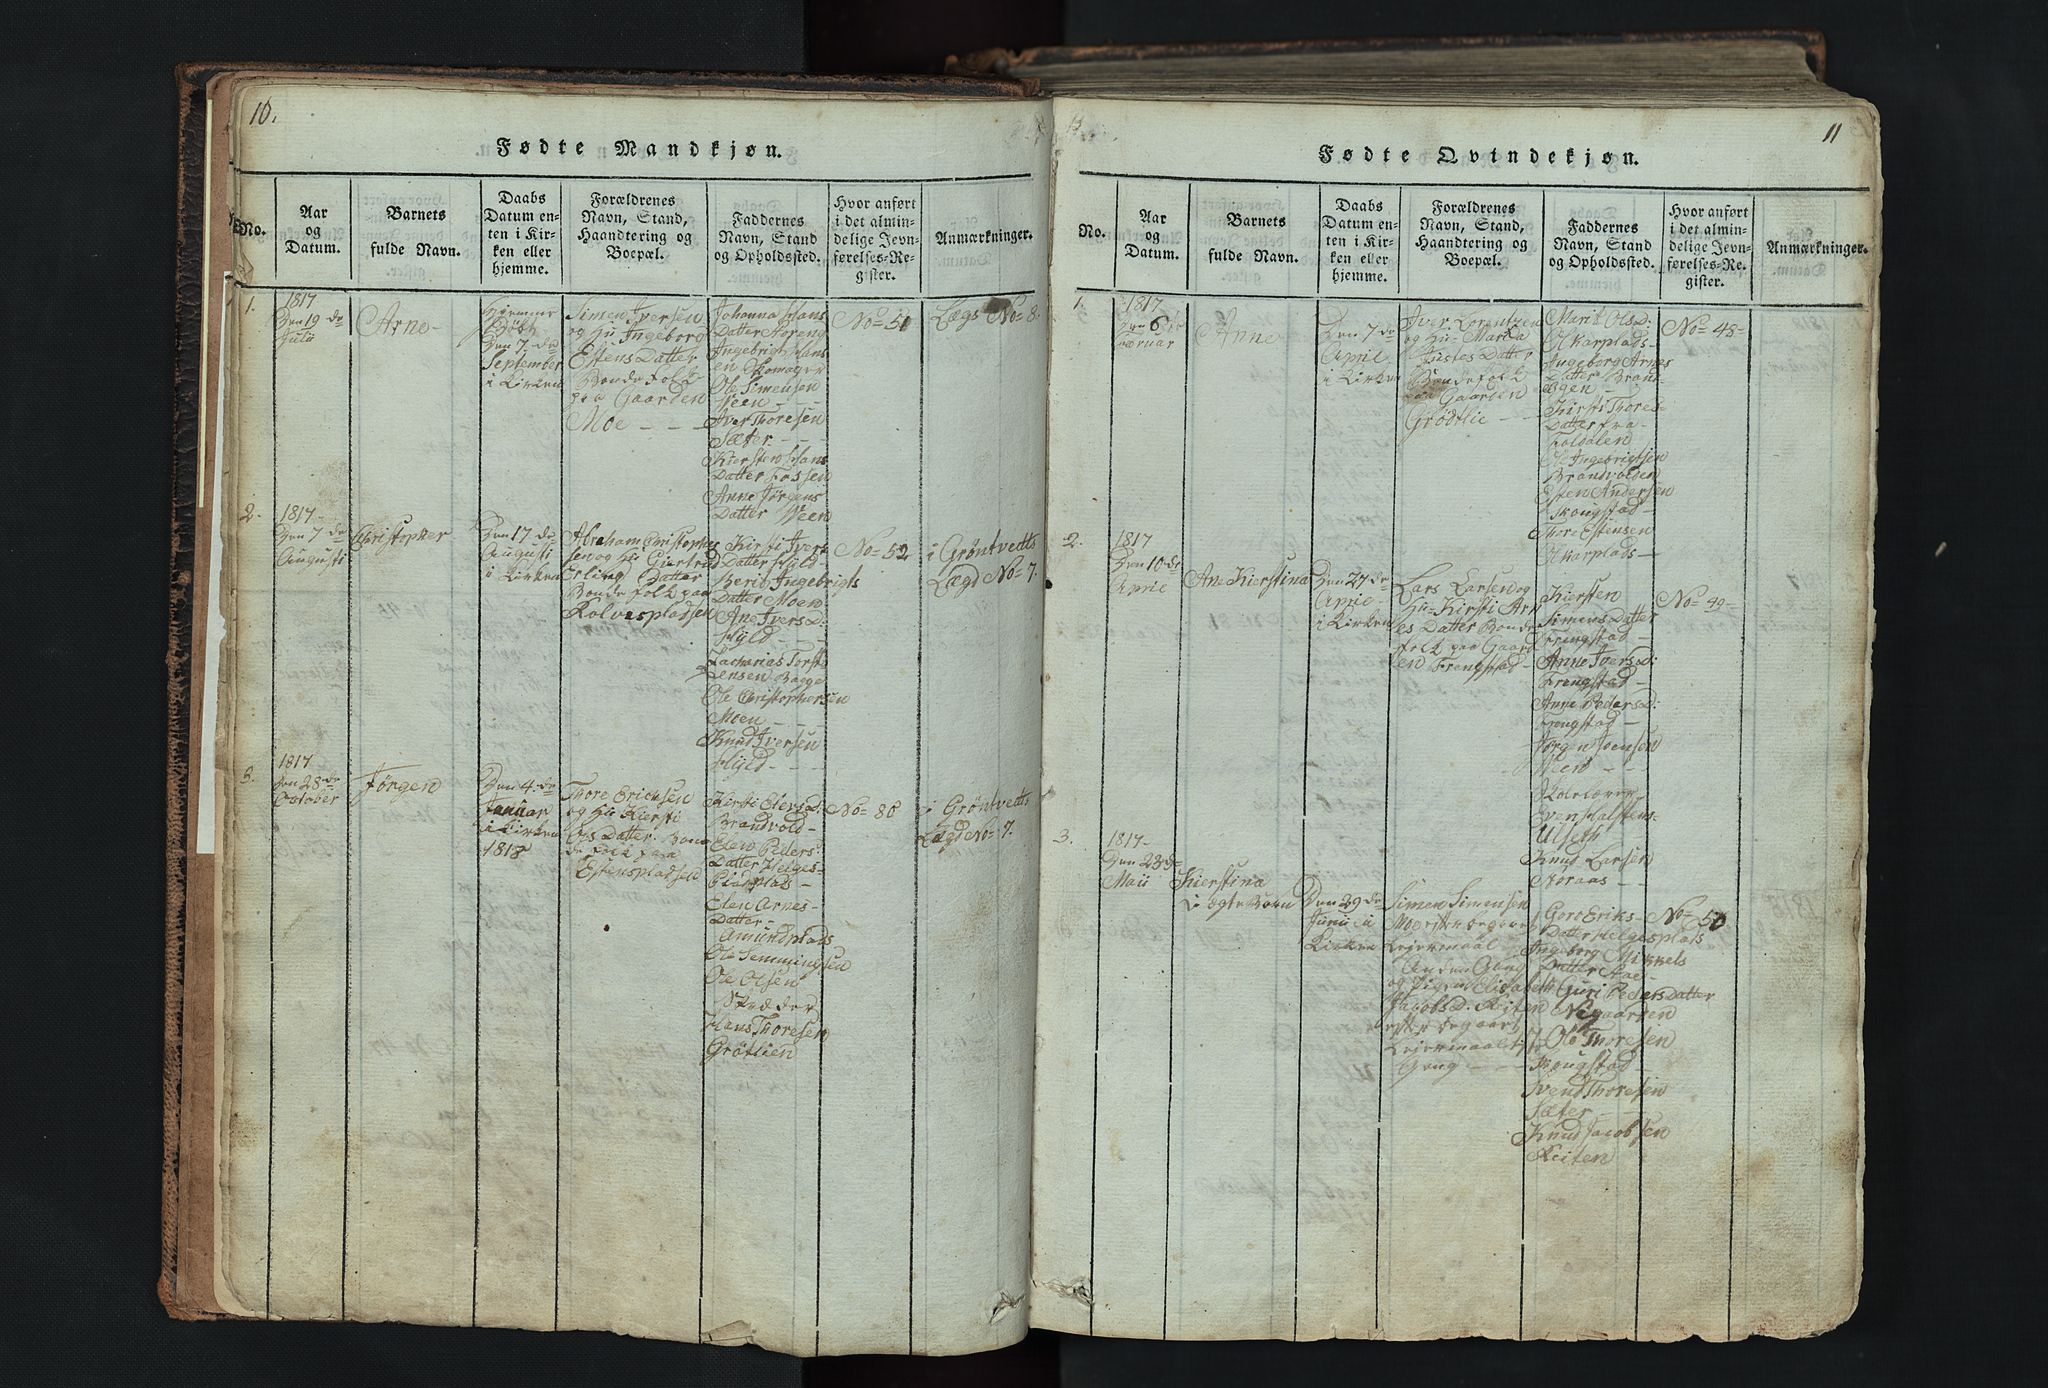 10.
Fødte Mandkjøn.
No.
Aar
og
Datum.
Barnets
fulde Navn.
Daabs
Datum en-
ten i Kir-
ken eller
hjemme.
Forældrenes
Navn, Stand,
Haandtering og
Boepæl.
Faddernes
Navn, Stand
og Opholdssted.
Hvor anført
i det almin-
delige Jevn-
førelses-Re-
gister.
Anmærkninger.
1.
1817
Den 19 de
Julii
Arne
Hjemme
Døbt
Den 7 de
September
i Kirken
Simen Iversen
og Hu Ingeborg
Estens Datter
Bonde folk
paa Gaarden
Moe
Johanna Hans
Datter Noreng
Ingebrigt Hans
en Skomager
Ole Simensen
Veen
Iver Thoresen
Sæter
Kiersten Hans
Datter Fossen
Anne Jørgens
Datter Veen
No 51
Lægs No 8.
2.
1817
Den 7 de
Augusti
Christopher
Den 17 de
Augusti
i Kirken
Abraham Christophe
sen og Hu Gurtrud
Erling Datter
Bonde folk paa
Kolvespladsen
Kirsti Ivers
Datter Hyld
Berit Ingebrigts
Datter Moen
Ane Ivers D:
Hyld
Zacharias Torst
ensen Bagge
Ole Christophersen
Moen
Knud Iversen
Hyld
No 52
i Grøntvedts
Lægd No 7.
3.
1817
Den 28 de
October
Jørgen
Den 4. de
Januar
i Kirken
1818
Thore Erichsen
og Hu Kiersti
Ols Datter Bon
de folk paa
Estenspladsen
Kirsti Elersd:
Brandvold
Elen Peders
Datter Helges
Pladsen
Elen Arnes
Datter
Amundplads
Ole Semmingsen
Ole Olsen
Hans Thoresen
Grøtlien
No 80
i Grøntvedts
Lægd No 7.
11
Fødte Qvindekjøn.
No.
Aar
og
Datum.
Barnets
fulde Navn.
Daabs
Datum en-
ten i Kir-
ken eller
hjemme.
Forældrenes
Navn, Stand,
Haandtering og
Boepæl.
Faddernes
Navn, Stand
og Opholdssted.
Hvor anført
i det almin-
delige Jevn-
førelses-Re-
gister.
Anmærkninger.
1.
1817
Den 6 te
Anne
Den 7 de
April
i Kirken
Iver Lorentzen
og Hu Marta
Datter
Bondefolk
paa Gaarden
Grødtlie
Marit Ols D:
Olkarplads
Ingeborg Arnes
Datter Brand
Øgen
Kirsti Thores
Datter fra
Foldalen
Ole Ingebrigtsen
Brandvolden
Esten Andersen
Skougstad
Thor Estensen
Olkarplads
No 48
2.
1817
Den 10 de
April
Ane Kierstina
Den 27 de
April
i Kirken
Lars Larsen og
Hu Kirsti Arn
es Datter Bonde
folk paa Gaard
en Frengstad
Kiersten
Simens Datter
Frengstad
Anne Ivers d:
Frengstad
Anne Peders d:
Frengstad
Jørgen Joensen
Veen
Even Halstens
Ulseth
Knud Larsen
Noraas
No 49
3.
1817
Den 23 de
Maii
Kierstina
Uægte Barn
Den 29 de
Junii i
Kirken
Simen Simensen
Moe første begaaet
Leiermaal
Anden Gang
og Pigen Elisabeth
Jacobs D: Kiten
første begaaet
Leiermaal
Gang
Goro Eriks
Datter Helgesplads
Ingeborg Mikkels
Datter Moe
Guri Peders Datter
Nygaarden
Ole Thoresen
Skougstad
Svend Thoresen
Sæter
Knud Jacobsen
Kiiten
No 50